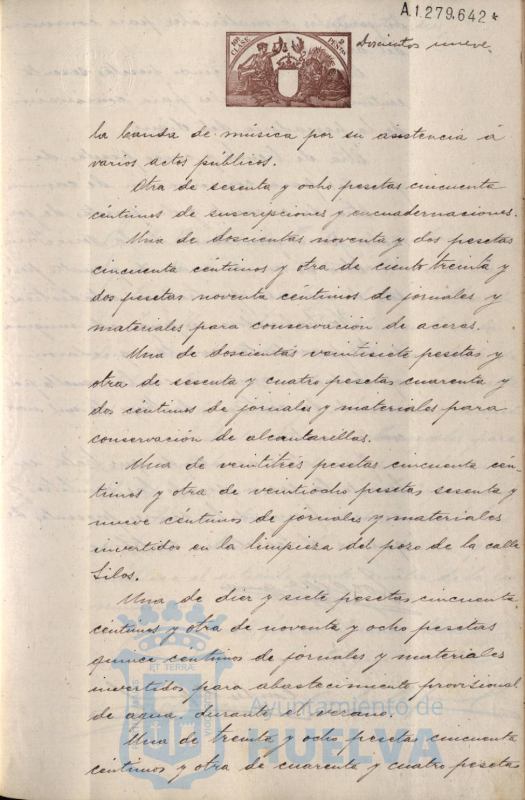 A.1.279.642*
10ª CLASE
2 PESETAS
doscientos nueve
la banda de música por su asistencia á
varios actos públicos.
Otra de sesenta y ocho pesetas cincuenta
céntimos de suscripciones y encuadernaciones.
Una de doscientas noventa y dos pesetas
cincuenta céntimos y otra de ciento treinta y
dos pesetas noventa céntimos de jornales y
materiales para conservación de aceras.
Una de doscientas veintisiete pesetas y
otra de sesenta y cuatro pesetas cuarenta y
dos céntimos de jornales y materiales para
conservación de alcantarillas.
Una de veintitrés pesetas cincuenta cén-
timos y otra de veintiocho pesetas sesenta y
nueve céntimos de jornales y materiales
invertidos en la limpieza del pozo de la calle
Silos.
Una de diez y siete pesetas cincuenta
céntimos y otra de noventa y ocho pesetas
quince céntimos de jornales y materiales
invertidos para abastecimiento provisional
de agua, durante el verano.
Una de treinta y ocho pesetas cincuenta
céntimos y otra de cuarenta y cuatro pesetas
ET TERRÆ
Ayuntamiento de
HUELVA